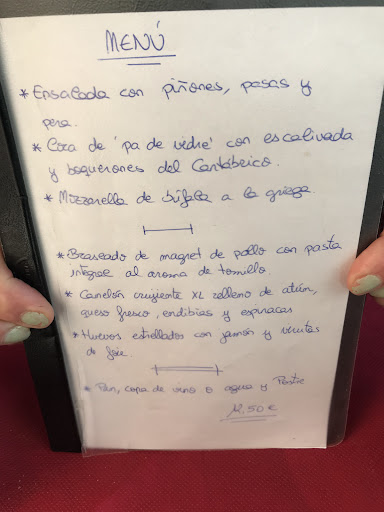 MENÚ
* Ensalada con piñones, pasas y
pera.
* Coca de 'pa de vidre' con escalivada
y boquerones del Cantábrico.
* Mozzarella de búfala a la griega.
* Braseado de magret de pollo con pasta
integral al aroma de tomillo.
* Canelón crujiente XL relleno de atún,
queso fresco, endibias y espinacas
* Huevos estrellados con jamón y virutas
de foie.
* Pan, copa de vino o agua y Postre
12.50 €